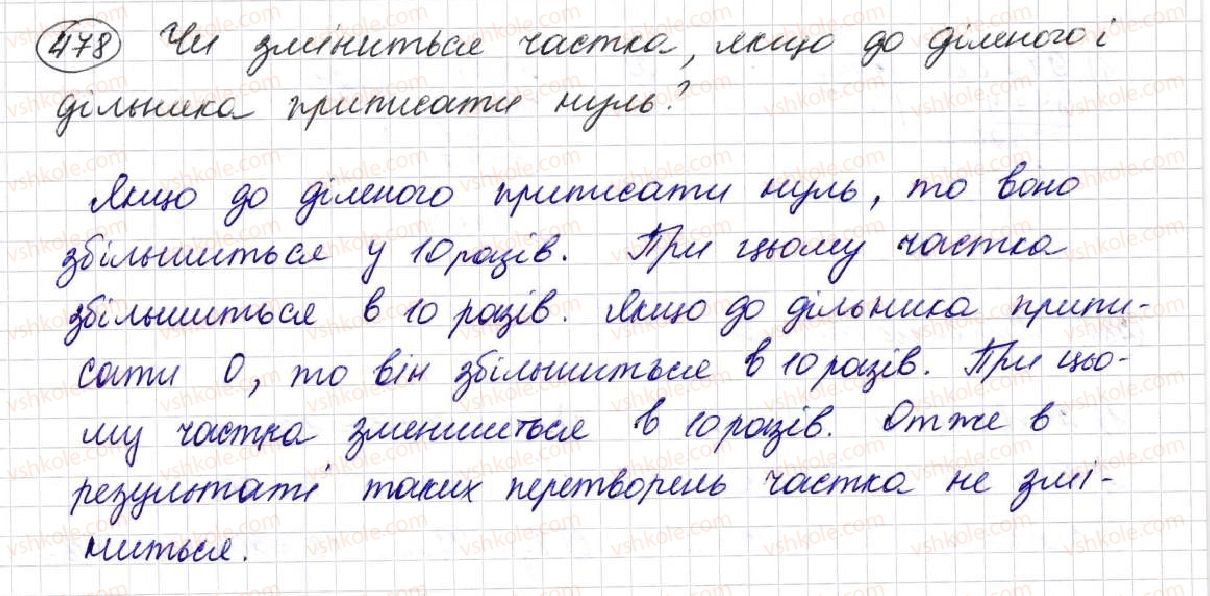 478 Чи зміниться частка, якщо до діленого і
дільника приписати нуль?
Якщо до діленого приписати нуль, то воно
збільшиться у 10 разів. При цьому частка
збільшиться в 10 разів. Якщо до дільника припи-
сати 0, то він збільшиться в 10 разів. При цьо-
му частка зменшиться в 10 разів. Отже в
результаті таких перетворень частка не змі-
ниться.